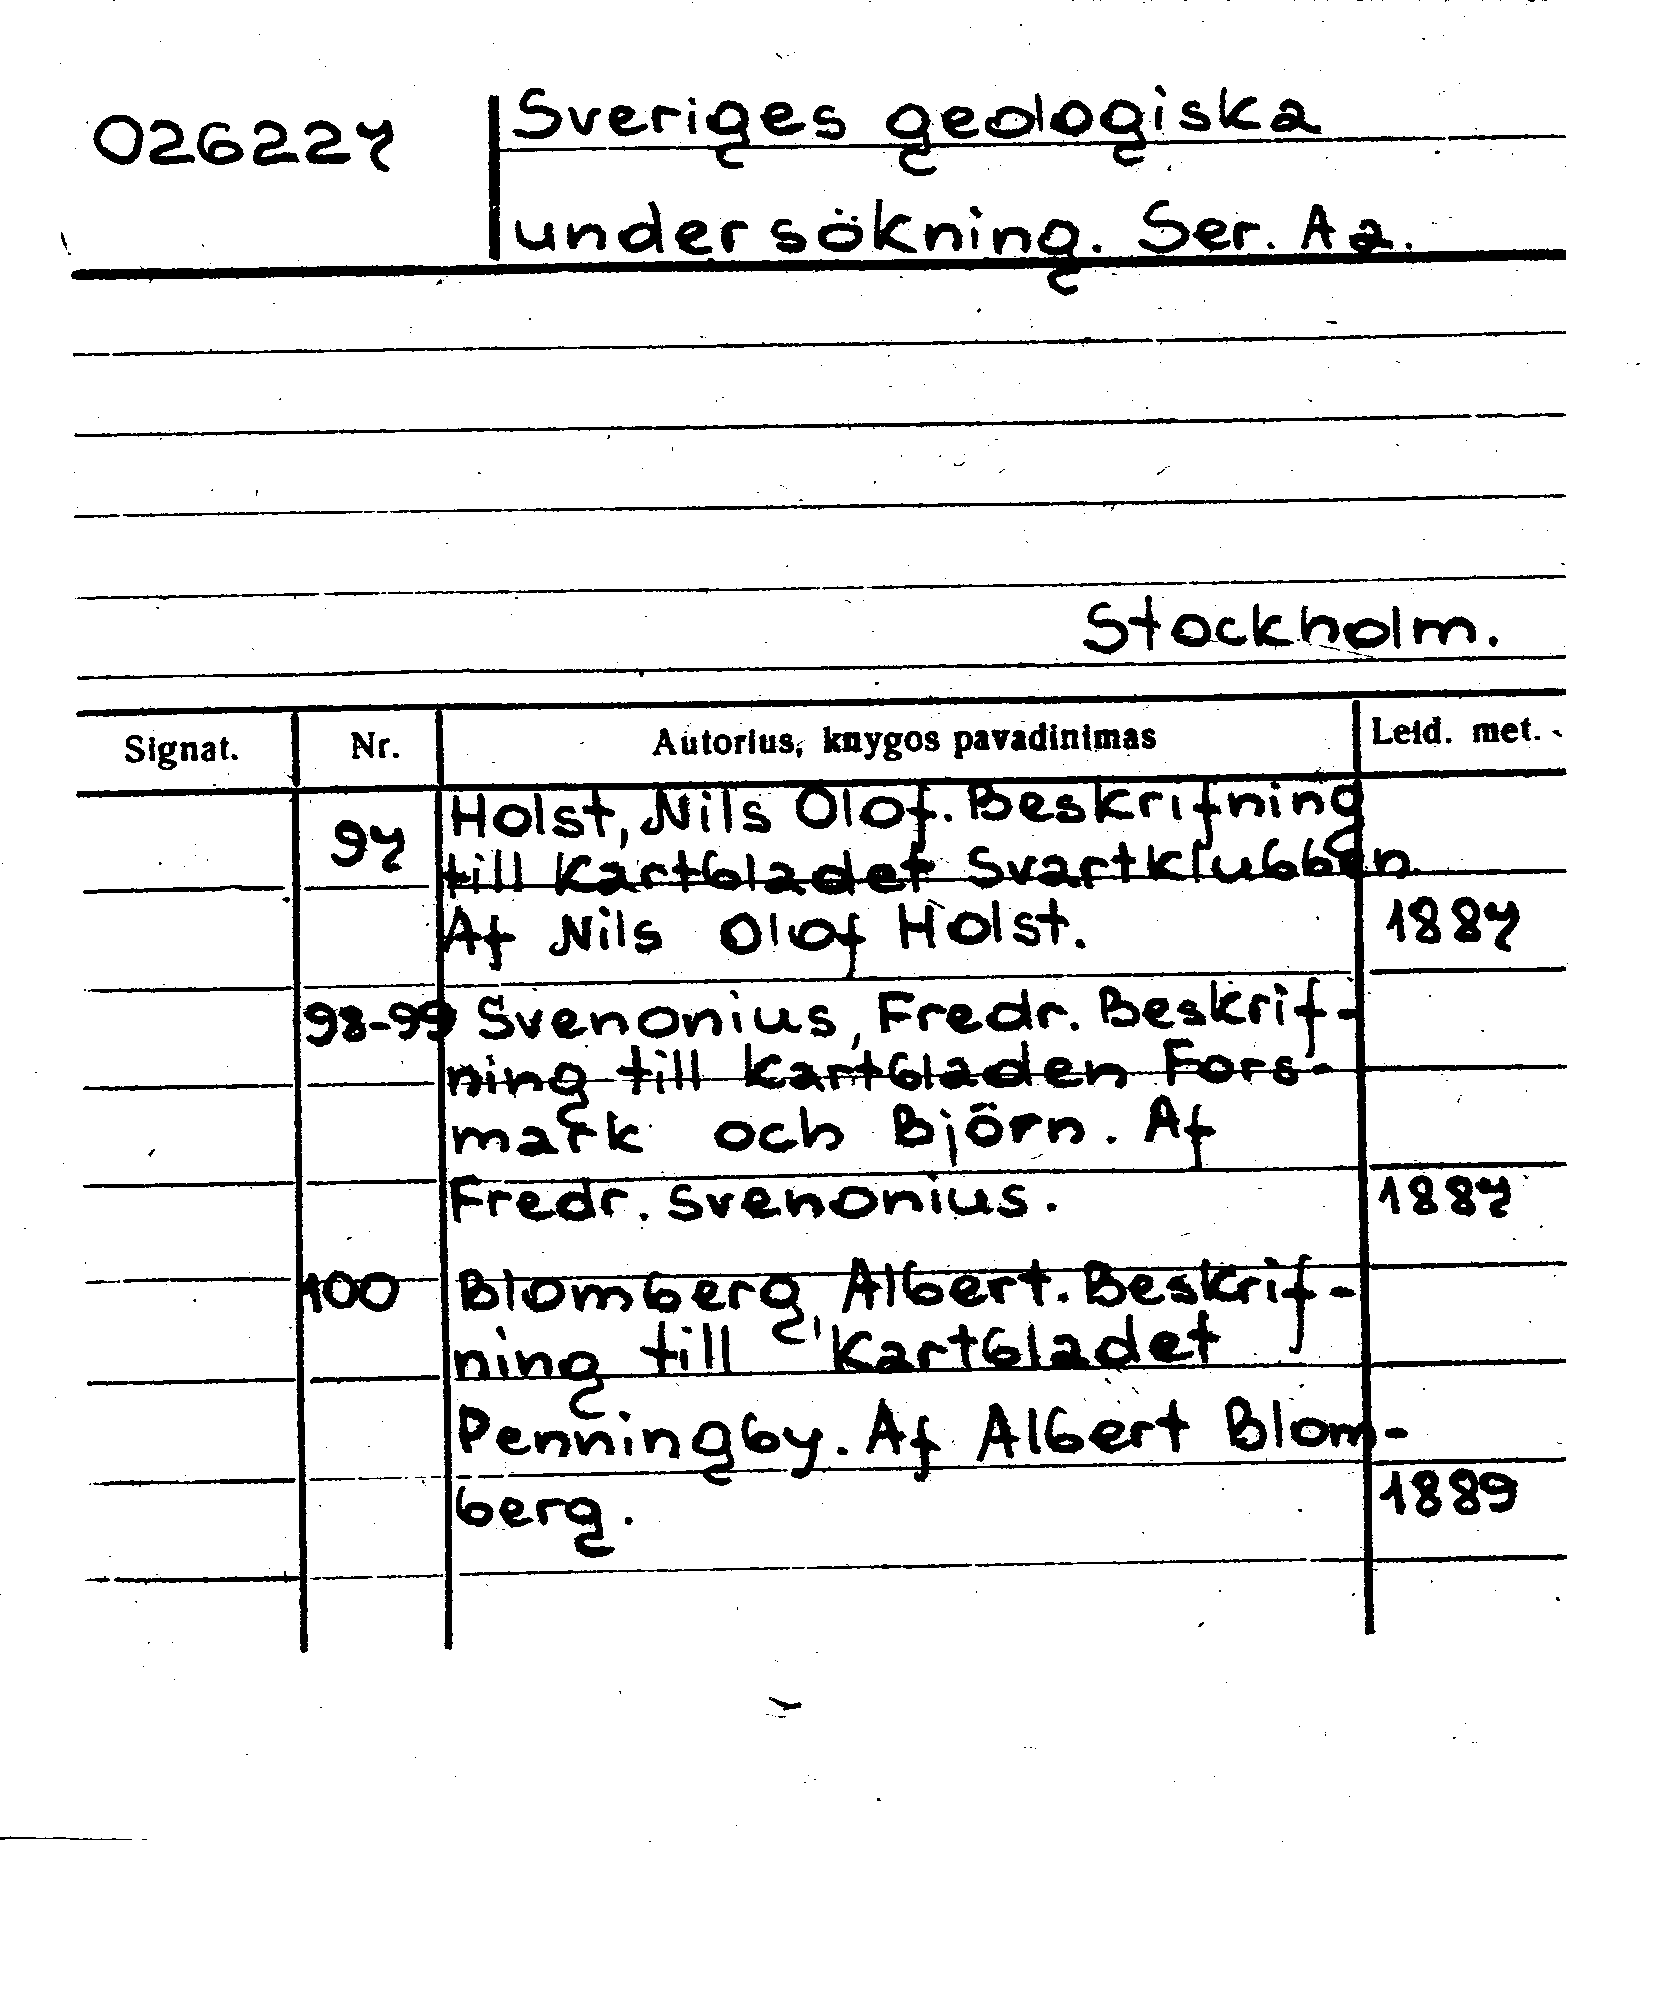 026227
Sveriges geologiska
undersökning. Ser. Aa.
Stockholm.
Signat. Nr. Autorius, knygos pavadinimas Leid. met.
97 Holst, Nils Olof. Beskrifning
till kartbladet Svartklubben.
Af Nils Olof Holst. 1887
98-99 Svenonius, Fredr. Beskrif-
ning till kartbladen Fors-
mark och Björn. Af
Fredr. Svenonius. 1887
100 Blomberg, Albert. Beskrif-
ning till kartbladet
Penningby. Af Albert Blom-
berg. 1889